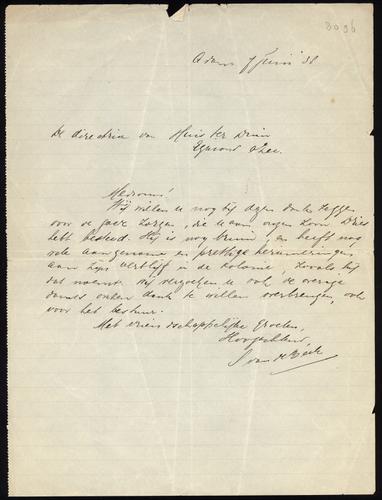 3096
Adam 7 Juni '38
De directrice van Huis ter Duin
Egmond a/Zee.
Mevrouw!
Wij willen u nog bij dezen dank zeggen
voor de goede zorgen, die u aan onzen zoon Dries
hebt besteed. Hij is nog bruin, en heeft nog
vele aangename en prettige herinneringen
aan zijn verblijf in de kolonie, zooals hij
dat noemt. Wij verzoeken u ook de overige
dames onzen dank te willen overbrengen, ook
voor het bestuur.
Met vriendschappelijke Groeten,
Hoogachtend,